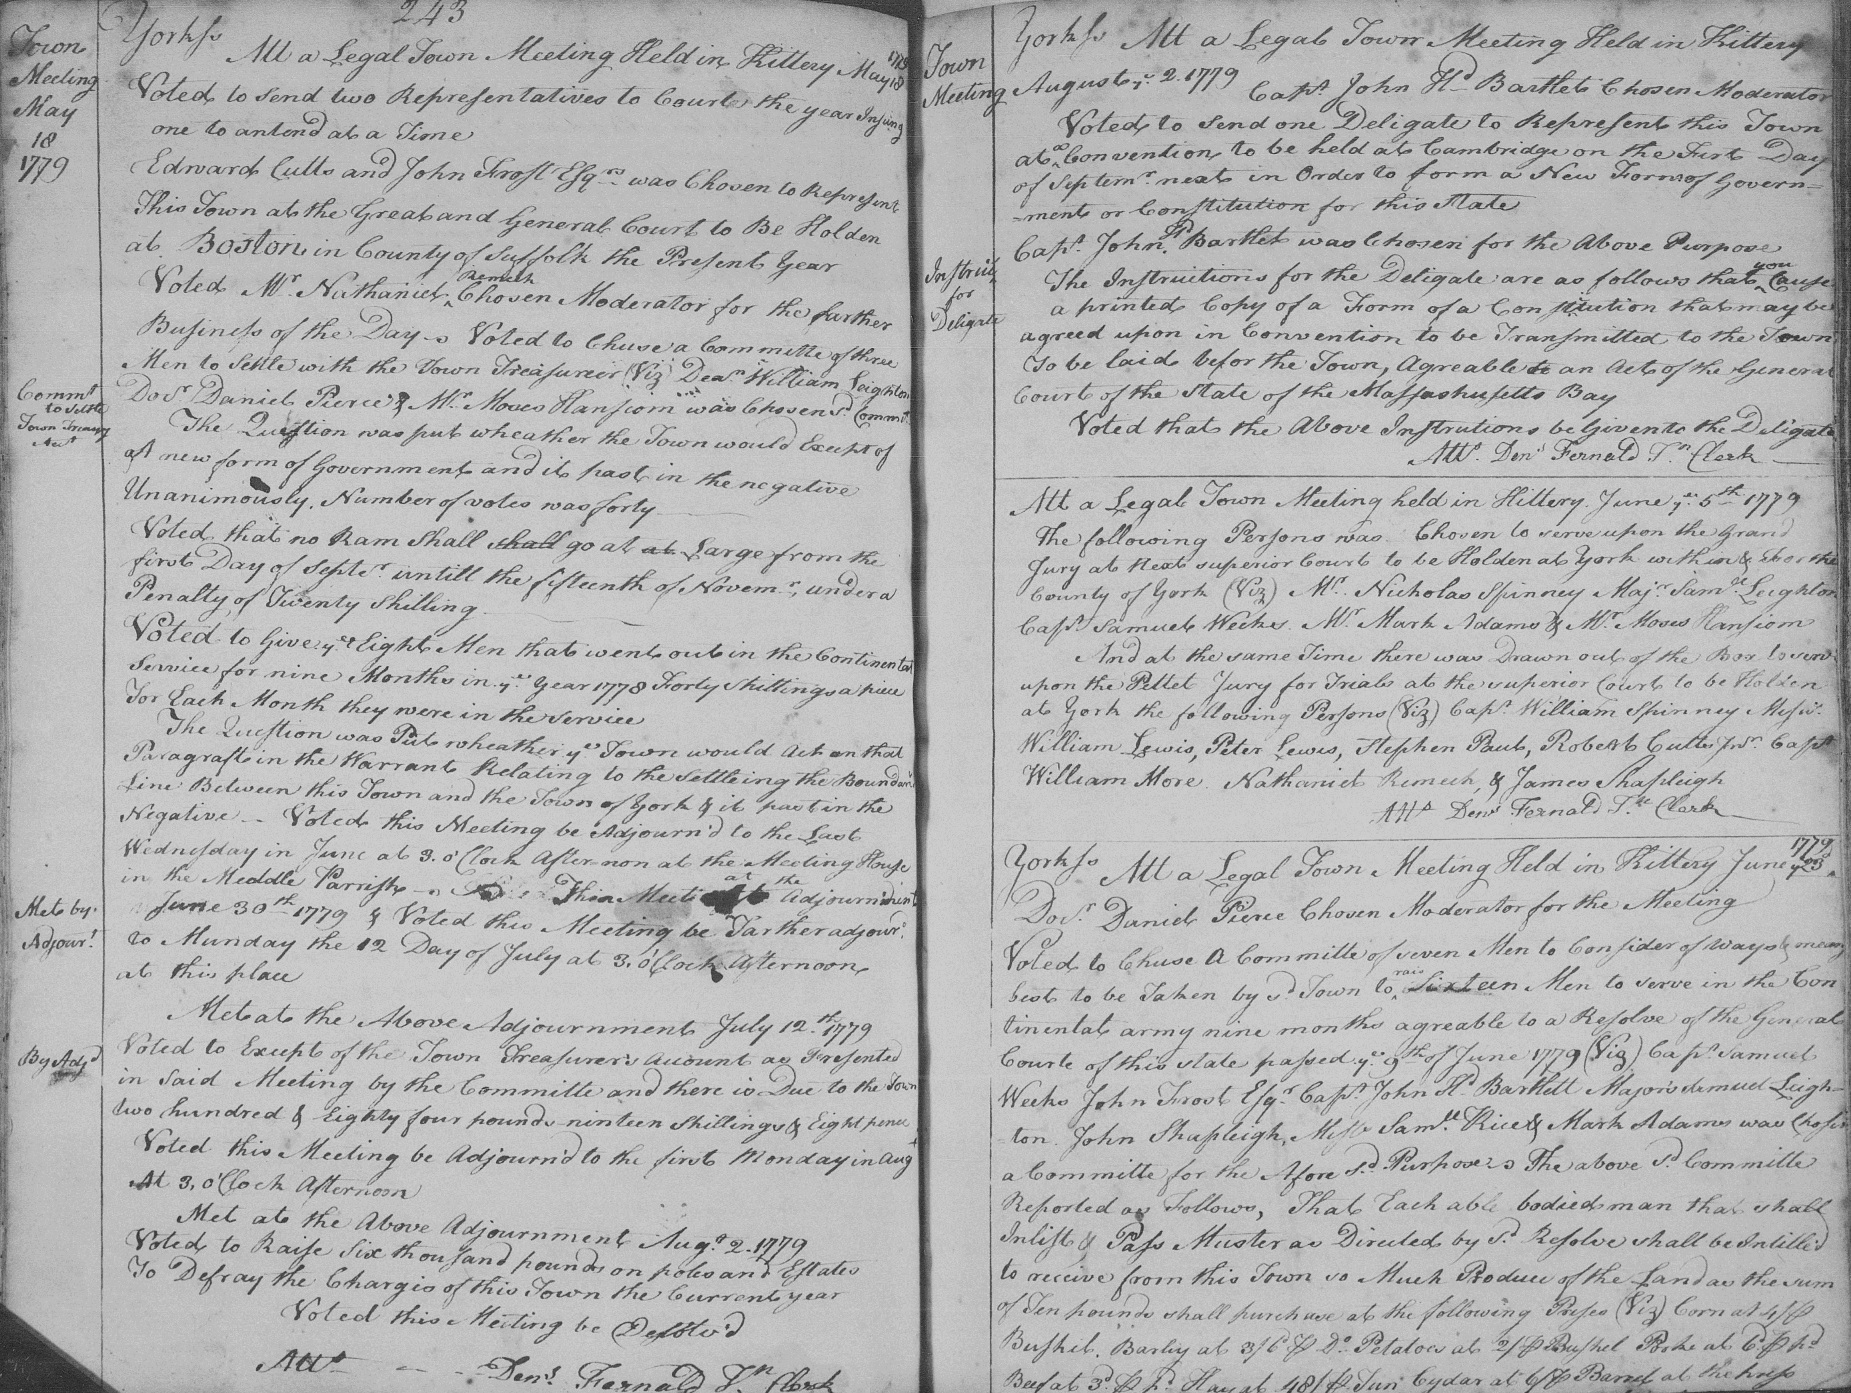 243
Town
Meeting
May
18
1779
York ss
Att a Legal Town Meeting Held in Kittery May 18 1779
Voted to send two Representatives to Court the year Insuing
one to antend at a Time
Edward Cutts and John Frost Esqrs was Chosen to Represent
This Town at the Great and General Court to Be Holden
at Boston in County of Suffolk the Present Year
Voted Mr Nathaniel Remich Chosen Moderator for the farther
Business of the Day - Voted to Chuse a Committe of three
Men to Settle with the Town Treasurer (Viz) Dean William Leighton
Docr Daniel Pierce & Mr Moses Hanscom was Chosen sd Commte
Commt
to Settle
Town Treasury
The Question was put wheather the Town would Except of
a new form of Government and it past in the negative
Unanimously. Number of votes was forty
Voted that no Ram Shall shall go at at Large from the
first Day of Septr untill the fifteenth of Novemr, under a
Penalty of Twenty Shilling
Voted to Give ye Eight Men that went out in the Continental
Service for nine Months in ye Year 1778 Forty Shillings a piece
For Each Month they were in the Service
The Question was Put wheather ye Town would Act on that
Paragraft in the Warrant Relating to the Settleing the Boundary
Line Between this Town and the Town of York & it past in the
Negative - Voted this Meeting be Adjourn'd to the Last
Wednesday in June at 3. o'Clock After-non at the Meeting House
in the Meddle Parrish - This Meeting at the Adjournment
Met by
Adjourt
June 30th 1779 & Voted this Meeting be Farther adjour'
to Munday the 12 Day of July at 3. o'Clock Afternoon
at this place
Met at the Above Adjournment July 12th 1779
By Adjd
Voted to Except of the Town Treasurer's Account as Presented
in said Meeting by the Committe and there is Due to the Town
two hundred & Eighty four pounds ninteen Shillings & Eight pence
Voted this Meeting be Adjourn'd to the first Monday in Aug
At 3, o'Clock Afternoon
Met at the Above Adjournment Augt 2. 1779
Voted to Raise Six thousand pounds on poles and Estates
To Defray the Chargis of this Town the Current year
Voted this Meeting be Desolv'd
Attt Dens Fernald Tn Clerk
Town
Meeting
York ss Att a Legal Town Meeting Held in Kittery
August ye 2. 1779 Capt John Hd Bartlet Chosen Moderator
Voted to Send one Deligate to Represent this Town
at a Convention to be held at Cambridge on the First Day
of Septemr next in Order to form a New Form of Govern=
=ment or Constitution for this State
Capt. John Hd Bartlet was Chosen for the Above Purpose
Instruct
for
Deligate
The Instructions for the Deligate are as follows that you Cause
a printed Copy of a Form of a Constitution that may be
agreed upon in Convention to be Transmitted to the Town
To be laid befor the Town, Agreable to an Act of the General
Court of the State of the Massachusetts Bay
Voted that the Above Instrutions be Given to the Deligate
Attt. Dens Fernald Tn Clerk
Att a Legal Town Meeting held in Kittery June ye 5th 1779
The following Persons was Chosen to serve upon the Grand
Jury at Next superior Court to be Holden at York within & for the
County of York (Viz) Mr. Nicholas Spinney Majr Saml Leighton
Capt Samuel Weekes Mr Mark Adams & Mr Moses Hanscom
And at the same Time there was Drawn out of the Box to serv
upon the Pettet Jury for Trials at the superior Court to be Holden
at York the following Persons (Viz) Capt. William Spinney Messrs
William Lewis, Peter Lewis, Stephen Paul, Robert Cutts Junr Capt
William More Nathaniel Remech, & James Shapleigh
Attt Dens Fernald Tn Clerk
York ss Att a Legal Town Meeting Held in Kittery June ye 23 1779
Docr Daniel Pierce Chosen Moderator for the Meeting
Voted to Chuse A Committe of seven Men to Consider of ways & means
best to be Taken by sd Town to rais Sixteen Men to serve in the Con
tinental army nine months agreable to a Resolve of the General
Court of this State passed ye 9th of June 1779 (Viz) Capt Samuel
Weeks John Frost Esqr Capt John Hd Bartlett Major Samuel Leigh=
=ton. John Shapleigh, Mess Samll Rice & Mark Adams was Chosen
a Committe for the Afore sd Purpose The above sd Committe
Reported as Follows, That Each able bodied man that shall
Inlist & Pass Muster as Directed by sd Resolve shall be Intilled
to receive from this Town so Much Produce of the Land as the sum
of Ten pounds shall purchase at the following Prises (Viz) Corn at 4/ ⅌
Bushel. Barley at 3/6 ⅌ Do Petatoes at 2/ ⅌ Bushel Porke at 6d ⅌ pd
Beef at 3d ⅌ pd Hay at 48/ ⅌ Tun Cydar at 6/ ⅌ Barrel at the press